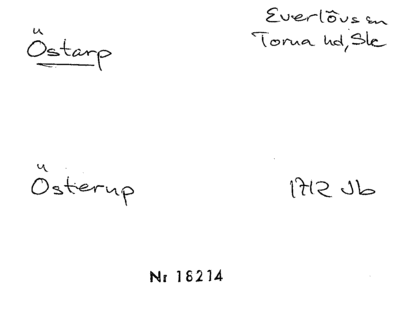 Ü
Östarp
Everlövs sn
Torna hd, Sk
Ü
Österup
1712 Jb
Nr 18214